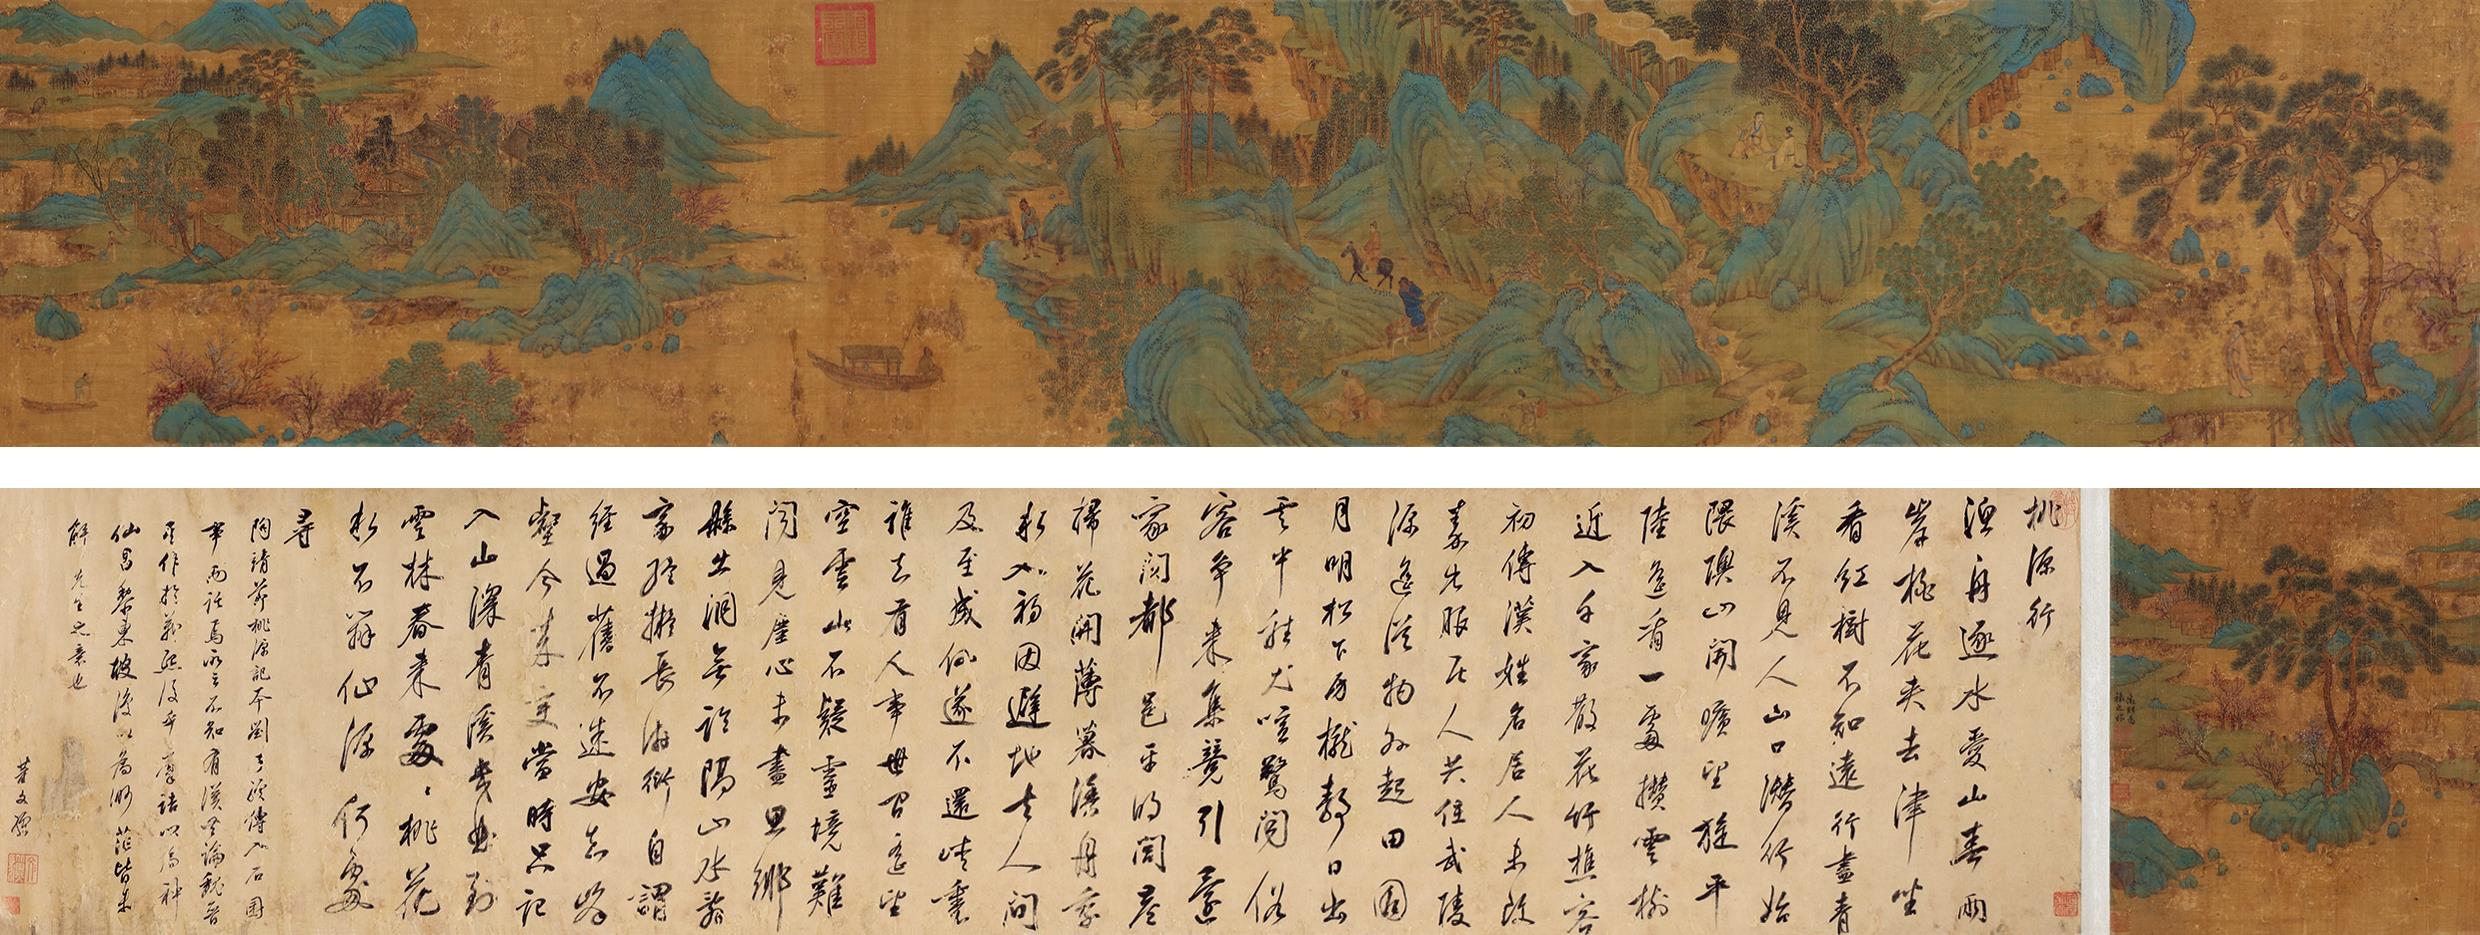 桃源行
漁舟逐水愛山春兩
岸桃花夾去津坐
看紅樹不知遠行盡青
溪不見人山口潛行始
隈隩山開曠望旋平
陸遙看一處攢雲樹
近入千家散花竹樵客
初傳漢姓名居人未改
秦衣服居人共住武陵
源還從物外起田園
月明松下房櫳靜日出
雲中雞犬喧驚聞俗
客爭來集競引還
家問都邑平明閭巷
掃花開薄暮漁舟乘
水入初因避地去人間
及至成仙遂不還峽裏
誰知有人事世中遙望
空雲山不疑靈境難
聞見塵心未盡思鄉
縣出洞無論隔山水辭
家終擬長游衍自謂
經過舊不迷安知峰
壑今來變當時只記
入山深青溪幾曲到
雲林春來處々桃花
水不辨仙源何處
尋
陶靖節桃源記本劉子驥傳入石囷
事而託焉所云不知有漢無論魏晉
是作於義熙後 摩詰以為神
仙昌黎東坡復以為渺茫皆未
解先生之意也
董文驥